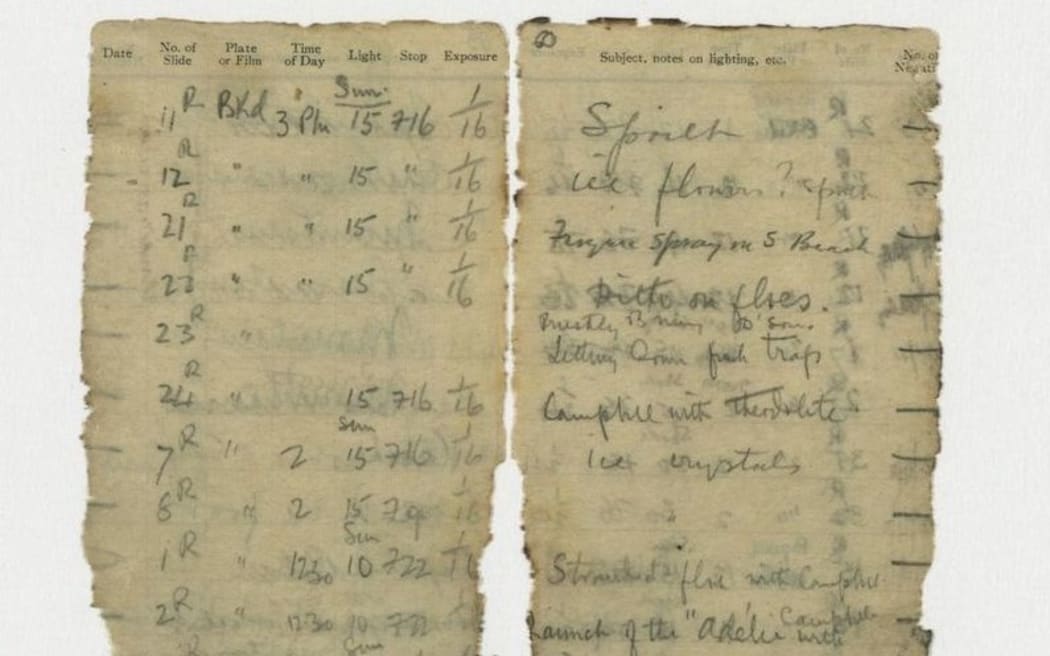 Date No. of Slide Plate or Film Time of Day Light Stop Exposure
Sun.
11 R Bkd 3 PM 15 716 1/16
12 R " " 15 " 1/16
21 R " " 15 " 1/16
22 R " " 15 " 1/16
23 R "
24 R " 15 716 1/16
Sun
7 R " 2 15 716 1/16
8 R " 2 15 1/16
Sun
1 R " 1230 10 722 1/16
2 R " 1230 10 722
Sun
60
Subject, notes on lighting, etc. No. of
Spoilt
ice flowers? spoilt
spray on S Beach
Ditto on floes.
Priestly
Letting down fish trap
Campbell with theodolite
ice crystals
Stranded floe with Campbell
Launch of the "Adélie with Campbell